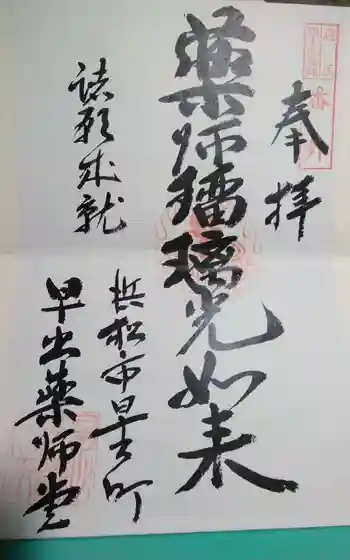 奉拝
薬師瑠璃光如来
諸願成就
浜松市早出町
早出薬師堂